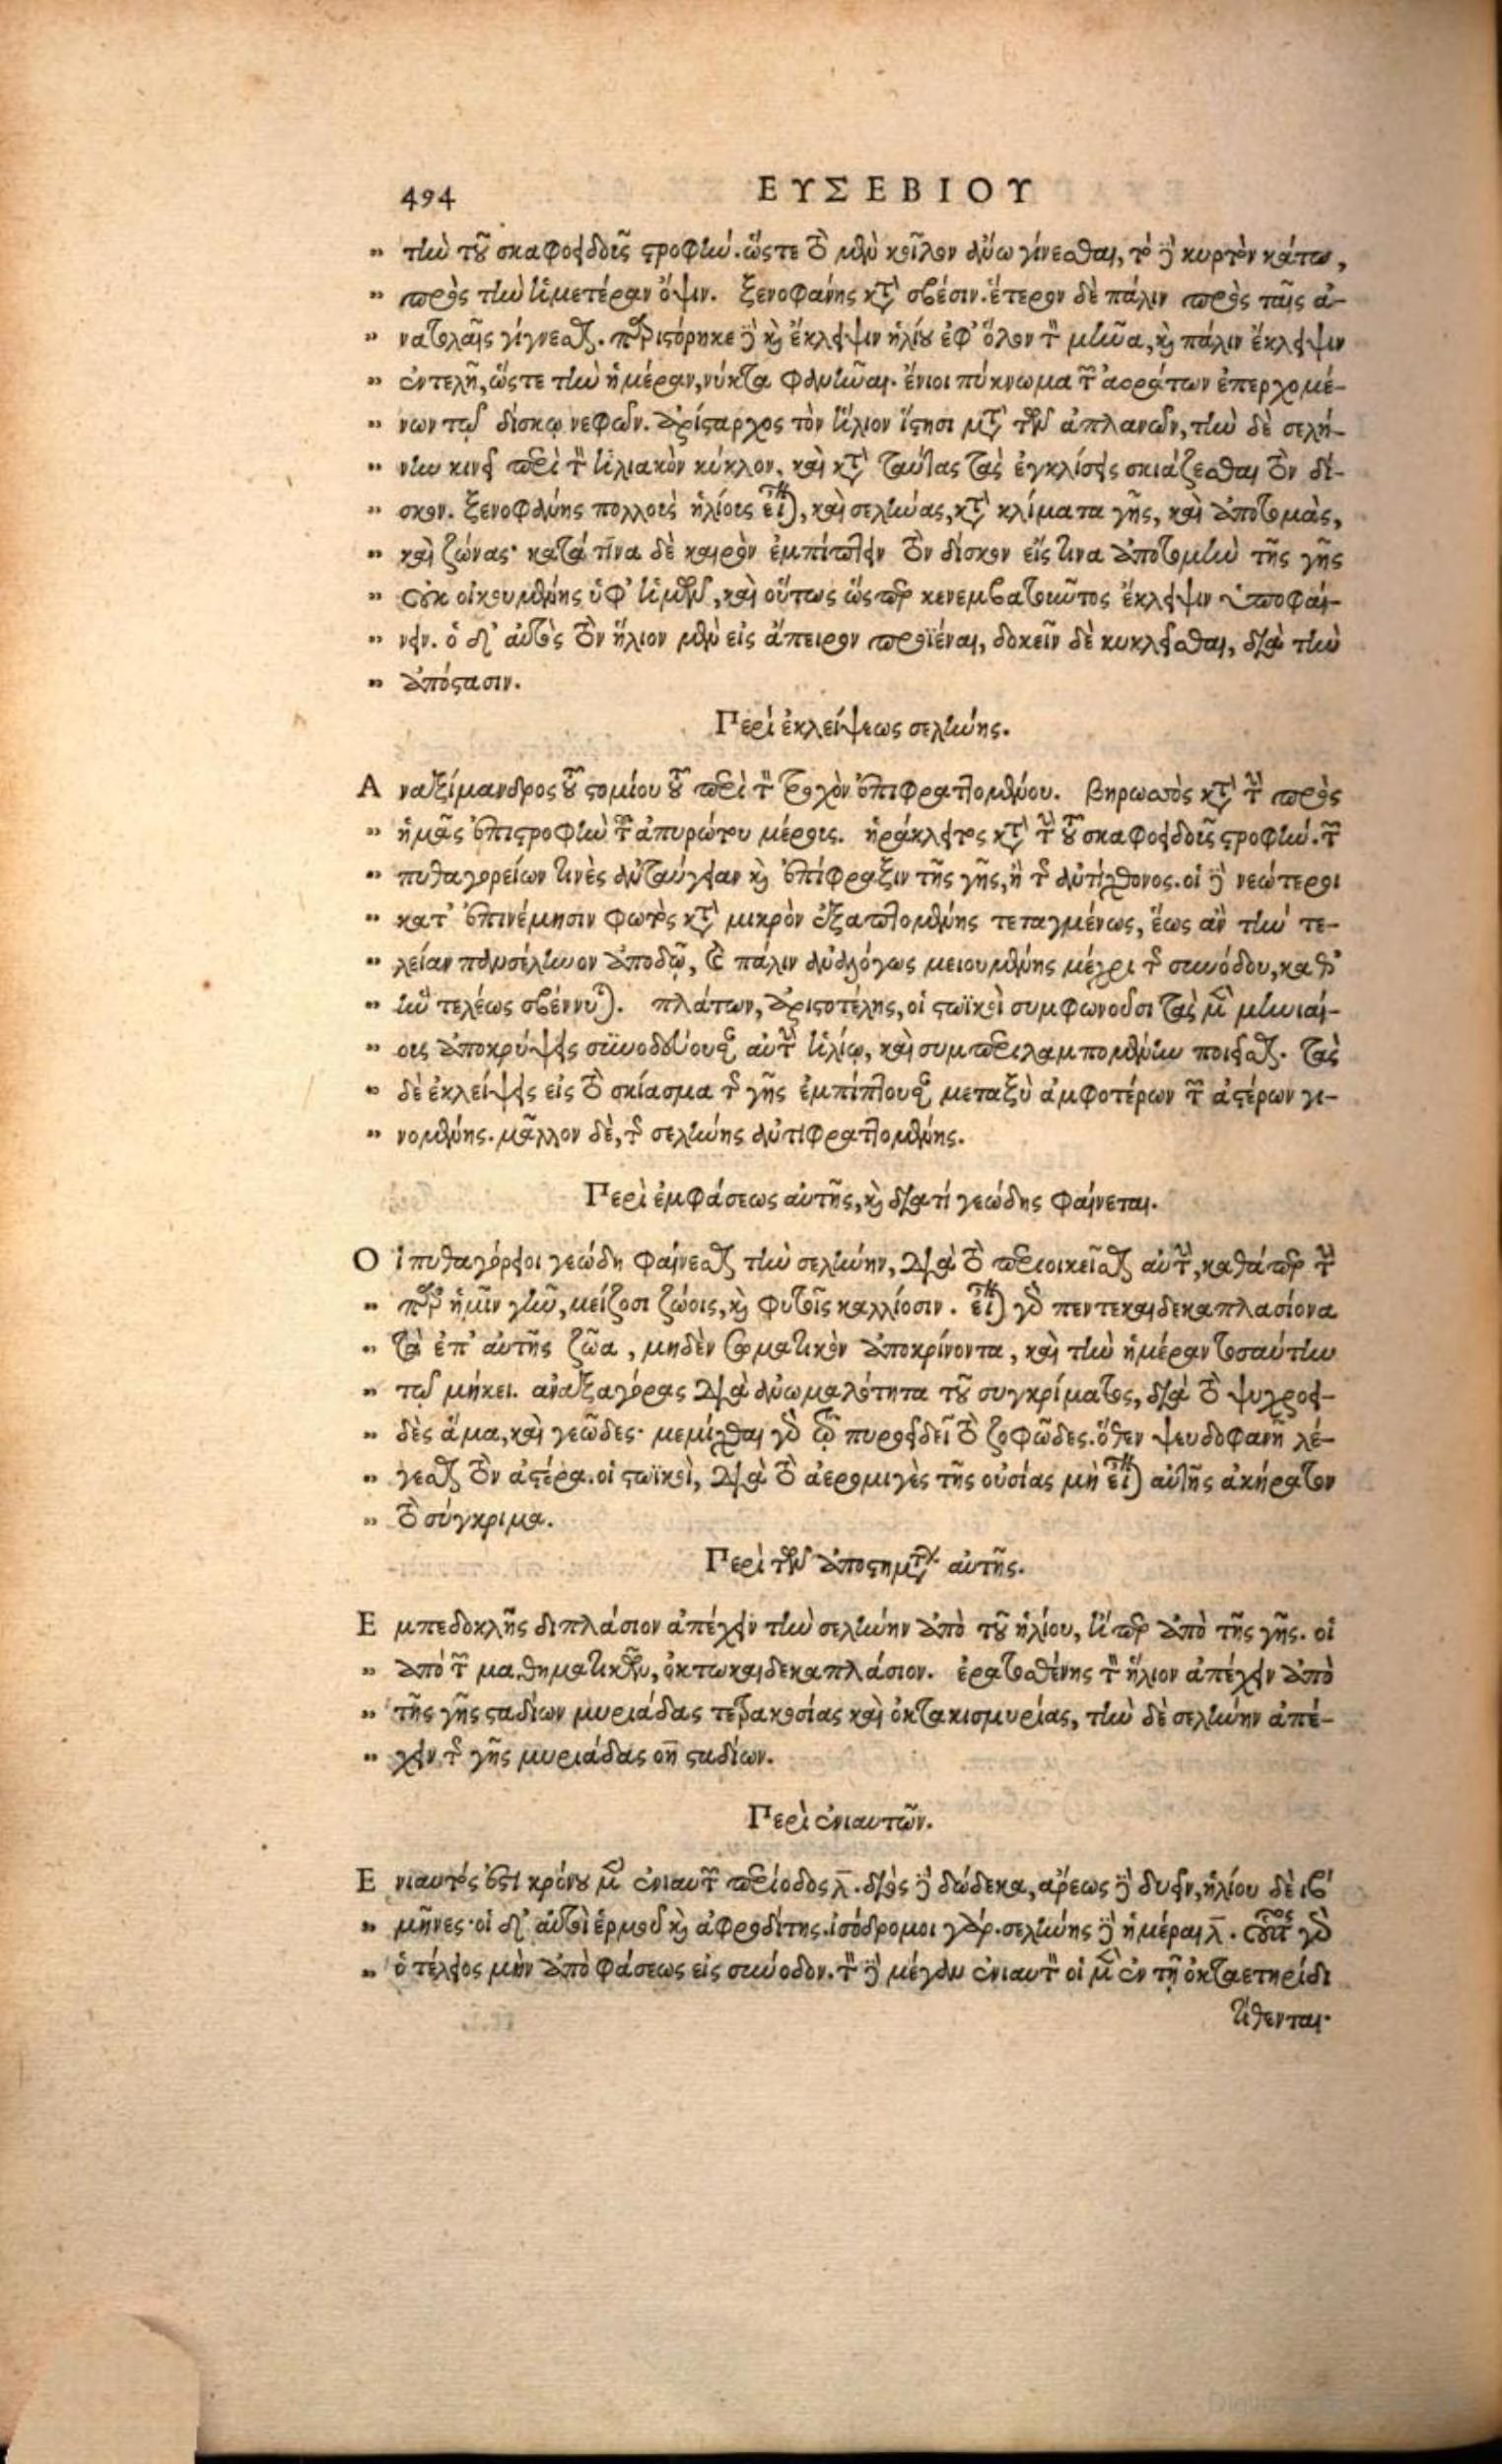 494 ΕΥΣΕΒΙΟΥ
" τὴν τοῦ σκαφοειδοῦς στροφήν. ὥστε τὸ μὲν κοῖλον ἄνω γίνεσθαι, τὸ δὲ κυρτὸν κάτω,
" πρὸς τὴν ἡμετέραν ὄψιν. ξενοφάνης κατὰ σβέσιν. ἕτερον δὲ πάλιν πρὸς ταῖς ἀ-
" νατολαῖς γίγνεσθαι. παριστόρηκε δὲ καὶ ἔκλειψιν ἡλίου ἐφ' ὅλον τὸν μῆνα, καὶ πάλιν ἔκλειψιν
" ἐντελῆ, ὥστε τὴν ἡμέραν, νύκτα φανῆναι. ἔνιοι πύκνωμα τῶν ἀοράτων ἐπερχομέ-
" νων τῷ δίσκῳ νεφῶν. ἀρίσταρχος τὸν ἥλιον ἵστησι μετὰ τῶν ἀπλανῶν, τὴν δὲ σελή-
" νην κινεῖ περὶ τὸν ἡλιακὸν κύκλον, καὶ κατὰ ταύτας τὰς ἐγκλίσεις σκιάζεσθαι τὸν δί-
" σκον. ξενοφάνης πολλοὺς ἡλίους εἶναι, καὶ σελήνας, κατὰ κλίματα γῆς, καὶ ἀποτομὰς,
" καὶ ζώνας· κατά τινα δὲ καιρὸν ἐμπίπτειν τὸν δίσκον εἴς τινα ἀποτομὴν τῆς γῆς
" οὐκ οἰκουμένης ὑφ' ἡμῶν, καὶ οὕτως ὥσπερ κενεμβατοῦντος ἔκλειψιν ὑποφαί-
" νειν. ὁ δ' αὐτὸς τὸν ἥλιον μὲν εἰς ἄπειρον προϊέναι, δοκεῖν δὲ κυκλεῖσθαι, διὰ τὴν
" ἀπόστασιν.
Περὶ ἐκλείψεως σελήνης.
Α ναξίμανδρος τοῦ στομίου τοῦ περὶ τὸν τροχὸν ἐπιφραττομένου. βηρωσσὸς κατὰ τὴν πρὸς
" ἡμᾶς ἐπιστροφὴν τοῦ ἀπυρώτου μέρους. ἡράκλειτος κατὰ τὴν τοῦ σκαφοειδοῦς στροφήν. τῶν
" πυθαγορείων τινὲς ἀνταύγειαν καὶ ἐπίφραξιν τῆς γῆς, ἢ τῆς ἀντίχθονος. οἱ δὲ νεώτεροι
" κατ' ἐπινέμησιν φωτὸς κατὰ μικρὸν ἐξαπτομένης τεταγμένως, ἕως ἂν τὴν τε-
" λείαν πανσέληνον ἀποδῷ, καὶ πάλιν ἀναλόγως μειουμένης μέχρι τῆς συνόδου, καθ'
" ἣν τελέως σβέννυται. πλάτων, ἀριστοτέλης, οἱ στωϊκοὶ συμφωνοῦσι τὰς μὲν μηνιαί-
" ους ἀποκρύψεις συνοδεύουσαν αὐτὴν ἡλίῳ, καὶ συμπεριλαμπομένην ποιεῖσθαι. τὰς
" δὲ ἐκλείψεις εἰς τὸ σκίασμα τῆς γῆς ἐμπίπτουσαν μεταξὺ ἀμφοτέρων τῶν ἀστέρων γι-
" νομένης. μᾶλλον δὲ, τῆς σελήνης ἀντιφραττομένης.
Περὶ ἐμφάσεως αὐτῆς, καὶ διατί γεώδης φαίνεται.
Ο ἱ πυθαγόρειοι γεώδη φαίνεσθαι τὴν σελήνην, διὰ τὸ περιοικεῖσθαι αὐτὴν, καθάπερ τὴν
" παρ' ἡμῖν γῆν, μείζοσι ζώοις, καὶ φυτοῖς καλλίοσιν. εἶναι γὰρ πεντεκαιδεκαπλασίονα
" τὰ ἐπ' αὐτῆς ζῶα, μηδὲν περματικὸν ἀποκρίνοντα, καὶ τὴν ἡμέραν τοσαύτην
" τῷ μήκει. ἀναξαγόρας διὰ ἀνωμαλότητα τοῦ συγκρίματος, διὰ τὸ ψυχροει-
" δὲς ἅμα, καὶ γεῶδες· μεμίχθαι γὰρ τῷ πυροειδεῖ τὸ ζοφῶδες. ὅθεν ψευδοφανῆ λέ-
" γεσθαι τὸν ἀστέρα. οἱ στωϊκοὶ, διὰ τὸ ἀερομιγὲς τῆς οὐσίας μὴ εἶναι αὐτῆς ἀκήρατον
" τὸ σύγκριμα.
Περὶ τῶν ἀποστημάτων αὐτῆς.
Ε μπεδοκλῆς διπλάσιον ἀπέχειν τὴν σελήνην ἀπὸ τοῦ ἡλίου, ἥπερ ἀπὸ τῆς γῆς. οἱ
" ἀπὸ τῶν μαθηματικῶν, ὀκτωκαιδεκαπλάσιον. ἐρατοσθένης τὸν ἥλιον ἀπέχειν ἀπὸ
" τῆς γῆς σταδίων μυριάδας τετρακοσίας καὶ ὀκτακισμυρίας, τὴν δὲ σελήνην ἀπέ-
" χειν τῆς γῆς μυριάδας οη σταδίων.
Περὶ ἐνιαυτῶν.
Ε νιαυτός ἐστι κρόνου μὲν ἐνιαυτῶν περίοδος λ. διὸς δὲ δώδεκα, ἄρεως δὲ δυεῖν, ἡλίου δὲ ιβ'
" μῆνες· οἱ δ' αὐτοὶ ἑρμοῦ καὶ ἀφροδίτης. ἰσόδρομοι γάρ. σελήνης δὲ ἡμέραι λ. οὗτος γὰρ
" ὁ τέλειος μὴν ἀπὸ φάσεως εἰς σύνοδον. τὸν δὲ μέγαν ἐνιαυτὸν οἱ μὲν ἐν τῇ ὀκταετηρίδι
τίθενται·